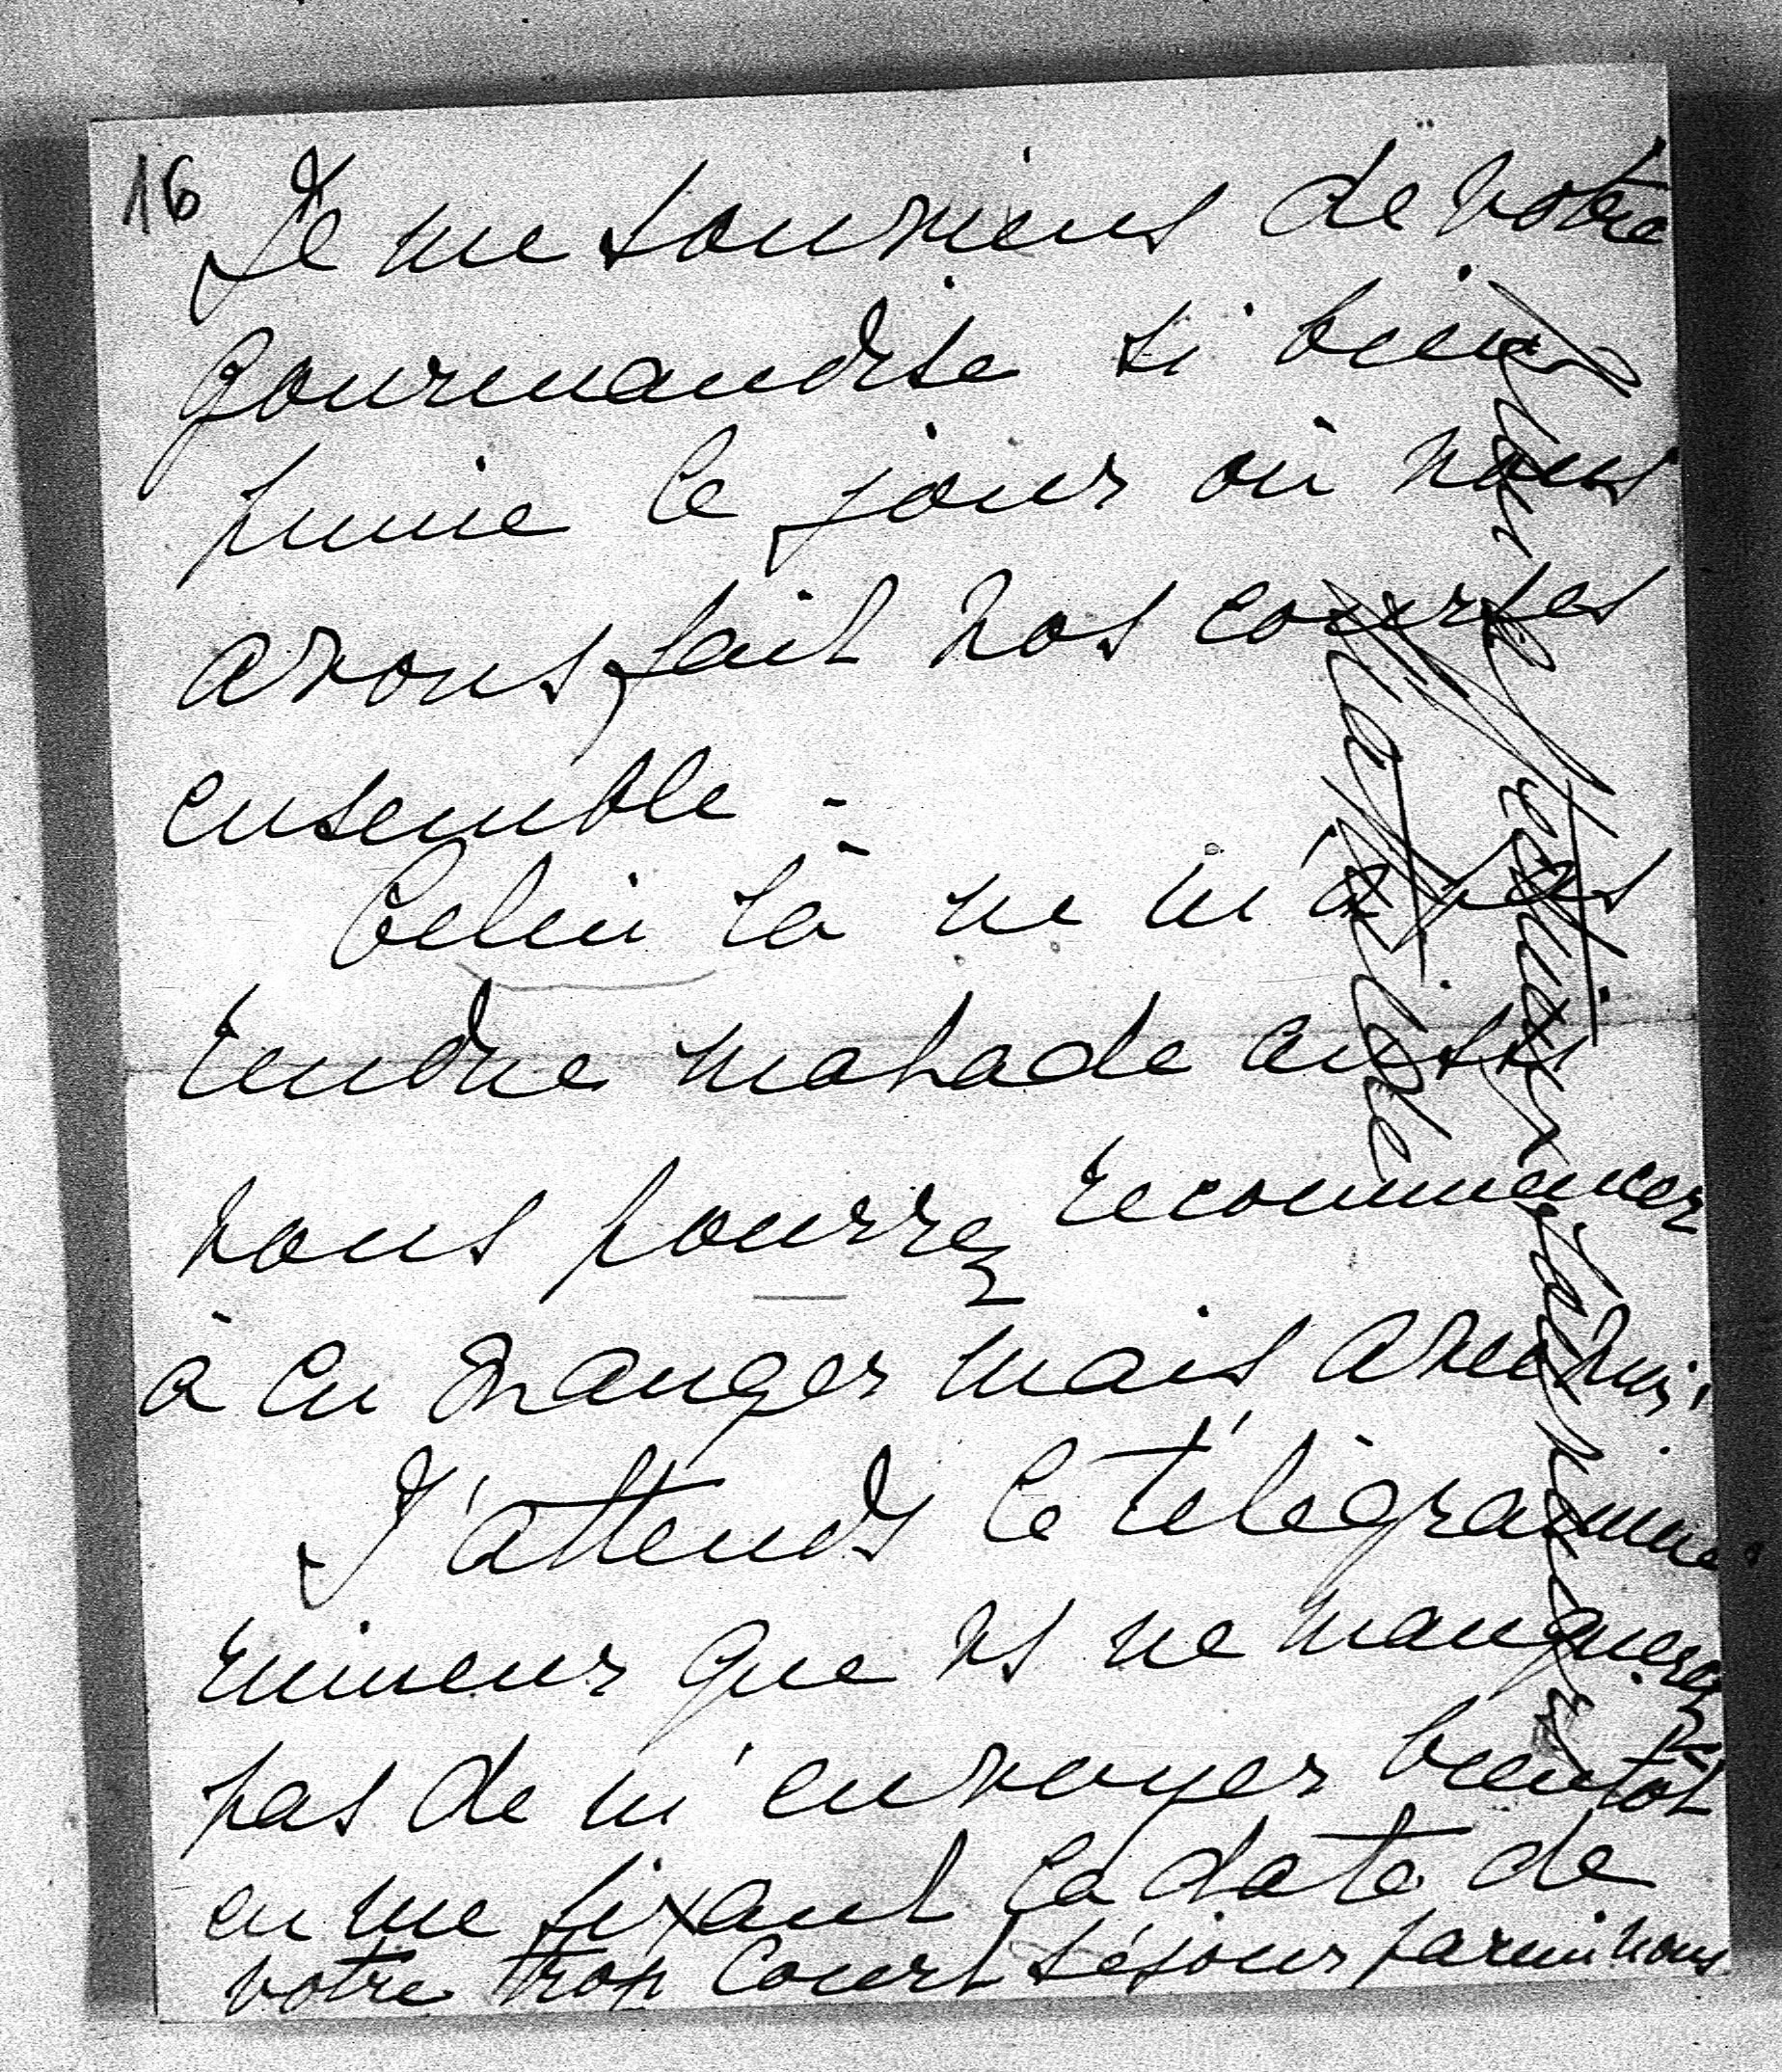 16
Je me souviens de votre
gourmandise si bien
punie le jour où nous
avons fait nos courses
ensemble -
Celui là ne m'a pas
rendue malade aussi
vous pourrez recommencer
à en manger mais avec moi.
J'attends le télégramme
rimeur que vs ne manquerez
pas de m'envoyer bientôt
en me fixant la date de
votre trop court séjour parmi nous